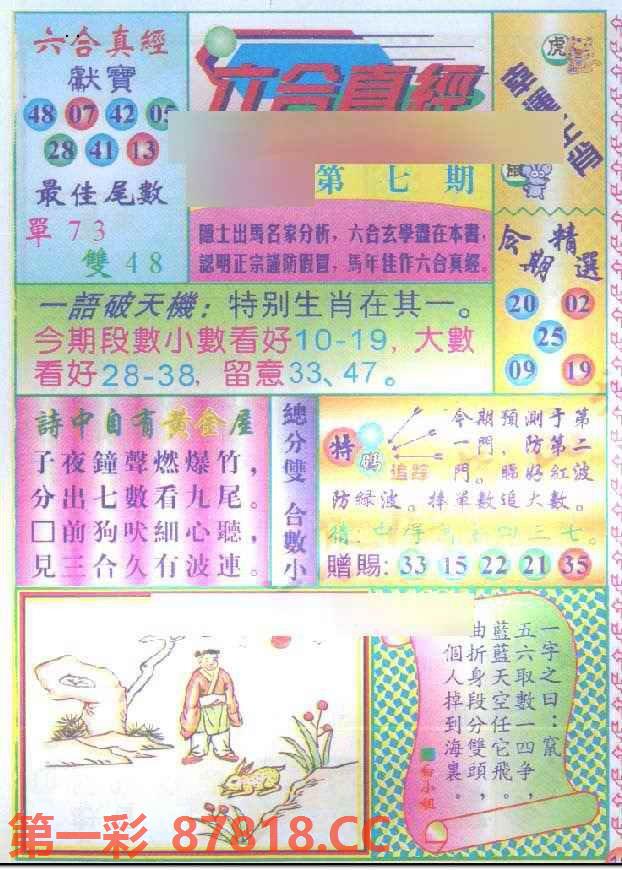 六合真經
獻寶
48 07 42 05
28 41 13
最佳尾數
單 7 3
雙 4 8
六合真經
第七期
隱士出馬名家分析，六合玄學盡在本書，
認明正宗謹防假冒，馬年佳作六合真經。
虎
鼠
今期精選
20 02
25
09 19
一語破天機：特別生肖在其一。
今期段數小數看好10-19，大數
看好28-38，留意33、47。
詩中自有黃金屋
子夜鐘聲燃爆竹，
分出七數看九尾。
□前狗吠細心聽，
見三合久有波連。
總分雙 合數小
特碼
追踪
今期預測于第
一門，防第二
門。睇好紅波
防綠波。捧單數追大數。
贈賜：33 15 22 21 35
一字之曰：竄
五六取數一四爭，
藍藍天空任它飛。
曲折身段分雙頭，
個人掉到海裏。
白小姐
第一彩 87818.CC